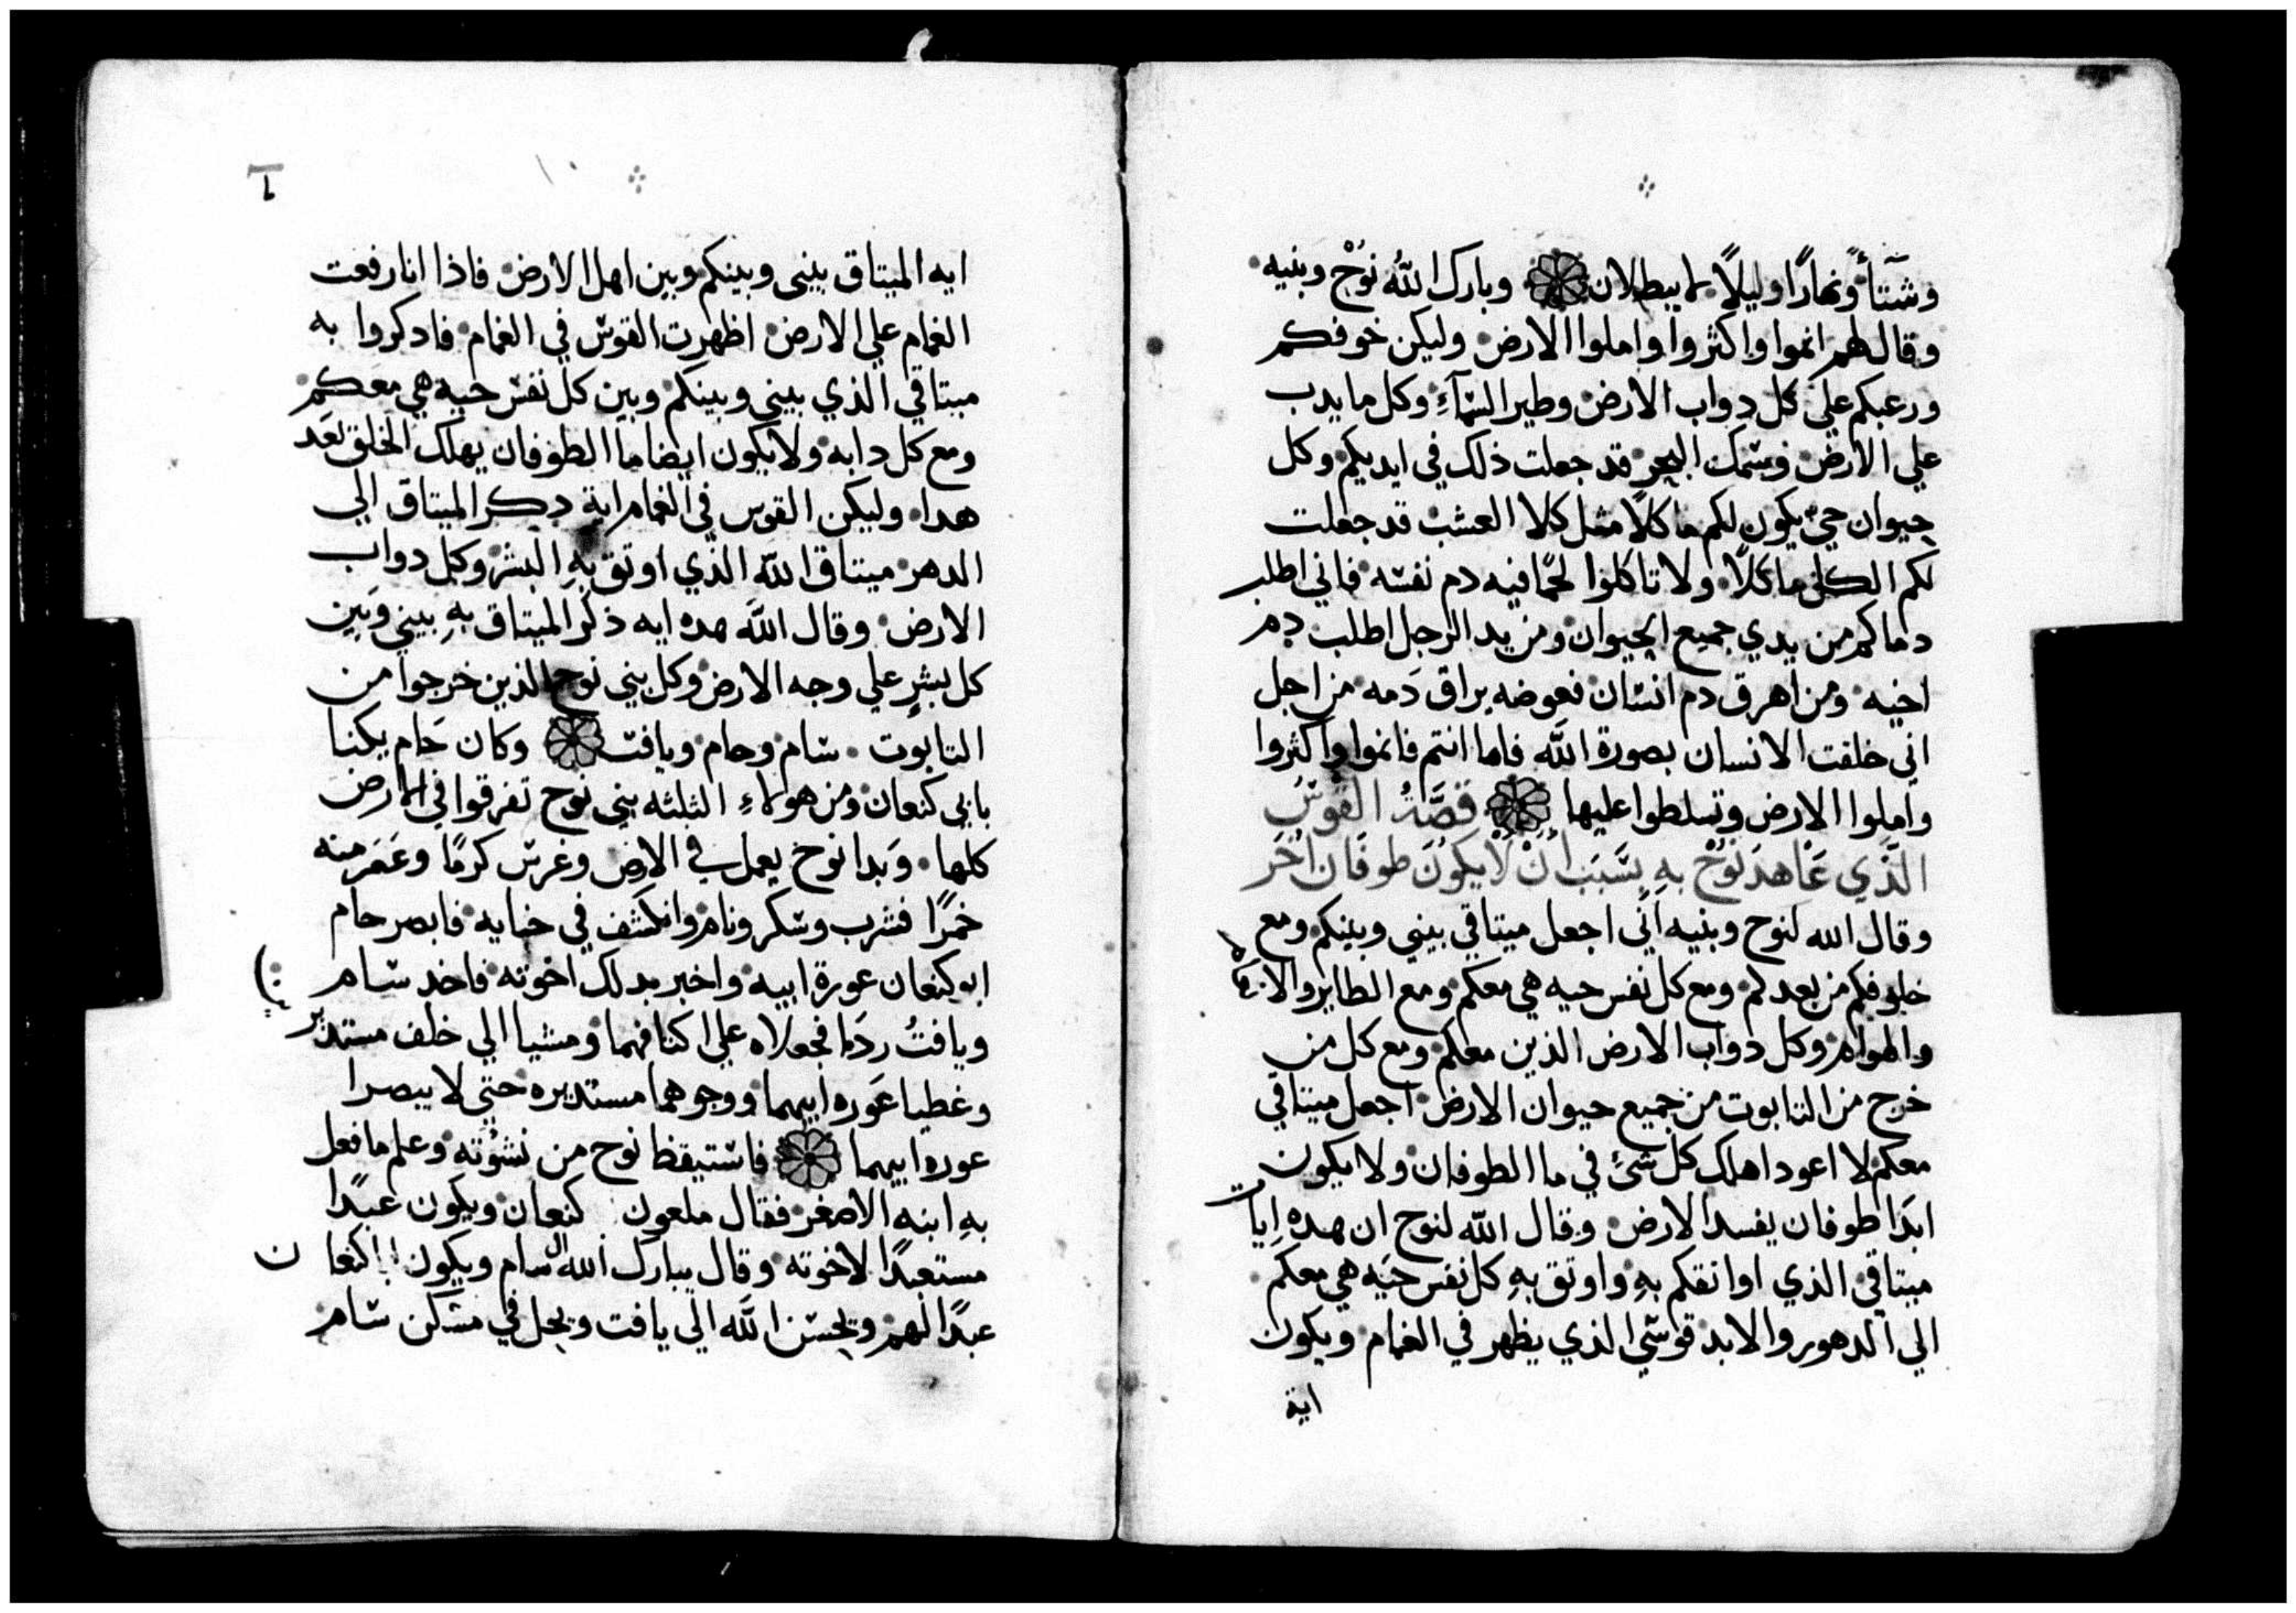 وشتآءً ونهارًا وليلًا لا يبطلان وبارك الله نوحْ وبنيه
وقال لهم انموا واكثروا واملوا الارض وليكن خوفكم
ورعبكم علي كل دواب الارض وطير السمآءِ وكل ما يدب
علي الارض وسمك البحر قد جعلت ذلك في ايديكم وكل
حيوان حيٌ يكون لكم ماكلًا مثل كلا العشب قد جعلت
لكم الكل ماكلًا ولا تاكلوا لحمًا فيه دم نفسه فاني اطلب
دماكم من يدي جميع الحيوان ومن يد الرجل اطلب دم
اخيه ومن اهرق دم انسان فعوضه يراق دَمه من اجل
اني خلقت الانسان بصورة الله فاما انتم فانموا واكثروا
واملوا الارض وتسلطوا عليها قصَّةُ القَوسْ
الَّذي عَاهدَ نوُحْ بهِ بِسَّبَبَ انْ لَا يكُونَ طوفَان اخَر
وقال الله لنوح وبنيه انّي اجعل ميتاقي بيني وبينكم ومع
خلوفكم من بعدكم ومع كل نفس حيه هي معكم ومع الطاير والانعام
والهوام وكل دواب الارض الذين معكم ومع كل من
خرج من التابوت من جميع حيوان الارض اجعل ميتاقي
معكم لا اعود اهلك كل شئ في ما الطوفان ولا ايكون
ابدَا طوفان يفسد الارض وقال الله لنوح ان هده اِيات
ميتاقي الذي اواتقكم بهِ واوتق بهِ كل نفس حيَه هي معكم
الي الدهور والابد قوسّي الذي يظهر في الغمام ويكون
اية
ايه الميتاق بيني وبينكم وبين اهل الارض فاذا انا رفعت
الغمام علي الارض اظهرت القوسّ في الغمام فادكروا به
ميتاقي الذي بيني وبينكم وبين كل نفسّ حيه هي معَكم
ومع كل دابه ولا يكون ايضا ما الطوفان يهلك الخلق بعَد
هدا وليكن القوس في الغمام اية دكر الميتاق الي
الدهر ميتاق الله الذي اوتق بهِ البشر وكل دواب
الارض وقال اللَه هده ايه ذكر الميتاق بهِ بيني وبَين
كل بشرٍ علي وجه الارض وكل بني نوح الذين خرجوا من
التابوت سّام وحام ويافت وكان حَام يكنا
بابي كنعان ومن هولاءِ الثلثه بني نوح تفرقوا في الارض
كلها وَبدا نوح يعمل في الارض وغرسّ كرمًا وعَصَر منه
خمرًا فشرب وسّكر ونام وانكشف في خبايه فابصر حام
ابو كنعان عورة ابيه واخبر بدلك اخوته فاخد سّام
ويافتُ ردَا فجعلاه علي اكتافهما ومشيا الي خلف مستدبر
وغطيا عَوره ابيهما ووجوهما مستدبره حَتي لا يبصرا
عوره ابيهما فاسّتيقظ نوح من نشوْته وعلم ما فعل
بهِ ابنه الاصغر فقال ملعون كنعان ويكون عبدًا
مستعبدًا لاخوته وقال يبارك الله ال سّام ويكون كنعان
عبدًا لهم ويحسّن اللَه الي يافت ويحل في مسّكن سّام